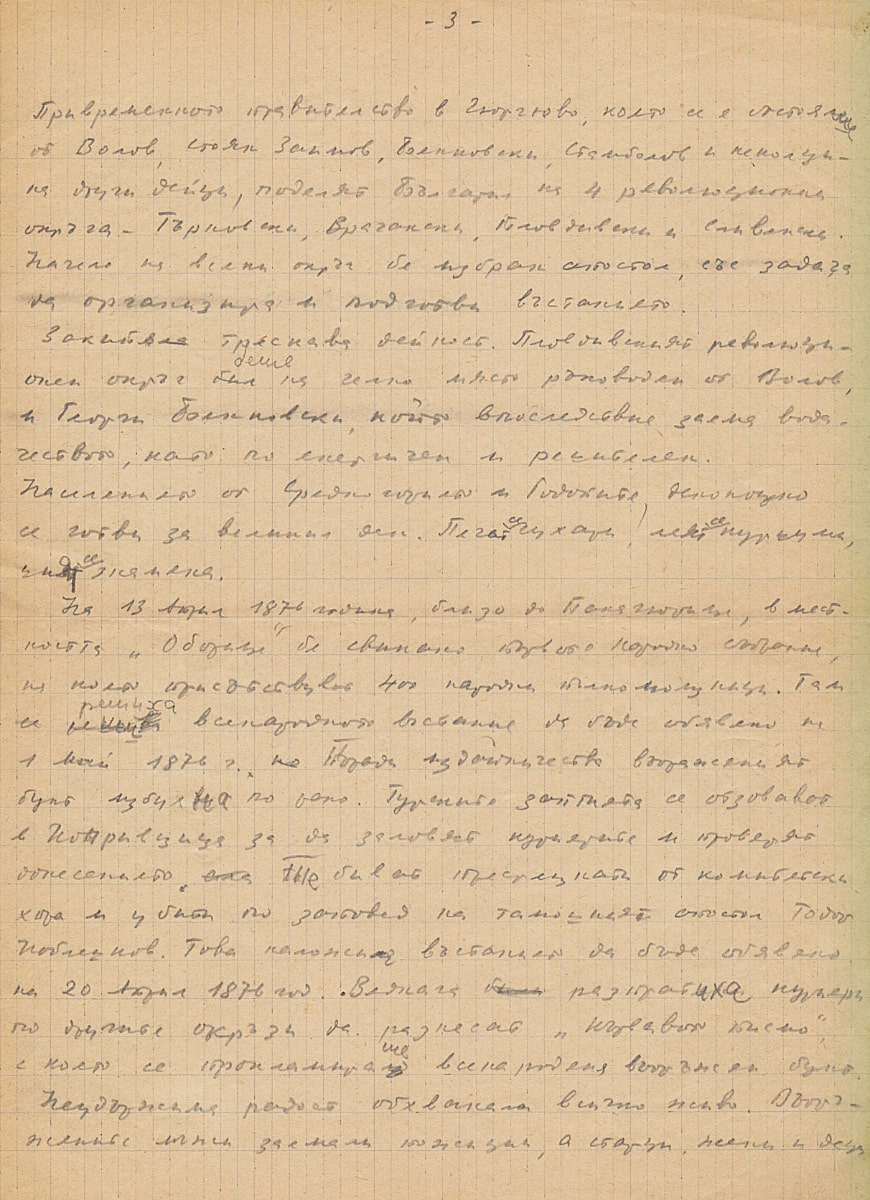 - 3 -
Привременното правителство в Гюргево, което се е състояло
от Волов, Стоян Заимов, Бенковски, Стамболов и неколци-
на други дейци, поделят България на 4 революционни
окръга - Търновски, Врачански, Пловдивски и Сливенски.
Начело на всеки окръг бе избран апостол, със задача
да организира и подготви въстанието.
Закипяла трескава дейност. Пловдивският революци-
беше
онен окръг бил на челно място ръководен от Волов,
и Георги Бенковски, който впоследствие заема вода-
чеството, като по енергичен и решителен.
Населението от Средногорието и Родопите денонощно
се готви за великия ден. Печат се сухари, леят се куршуми,
се жилека.
На 13 Април 1876 година, близо до Панагюрище, в мест-
ността „Оборище" бе свикано първото народно събрание,
на което присътствуват 400 народни пълномощници. Там
решиха
се всенародното въстание да бъде обявено на
1 Май 1876 г. но Поради издайничество въоръженият
бунт избухна по рано. Турските заптиета се отзовават
в Копривщица за да заловят куриерите и проверят
донесението, Те биват пресрещнати от комитетски
хора и убити по заповед на тамошният апостол Тодор
Каблешков. Това наложи въстанието да бъде обявено
на 20 Април 1876 год. Веднага били разпратиха куриери
по другите окръзи да разнесат „Кървавото писмо",
ше
с което се прокламира всенародния въоръжен бунт.
Неудържима радост обхванала всичко живо. Въоръ-
жените мъже заемали позиции, а старци, жени и деца